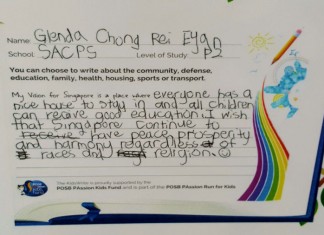 Name Glenda Chong Rei Eyan
School SACPS Level of Study P2
You can choose to write about the community, defense,
education, family, health, housing, sports or transport.
My Vision for Singapore is a place where everyone has a
nice house to stay in and all children
can receive good education. I wish
that Singapore continue to
have peace, prosperity
and harmony regardless of
races and religion.
This KidsWrite is proudly supported by the
POSB PAssion Kids Fund and is part of the POSB PAssion Run for Kids